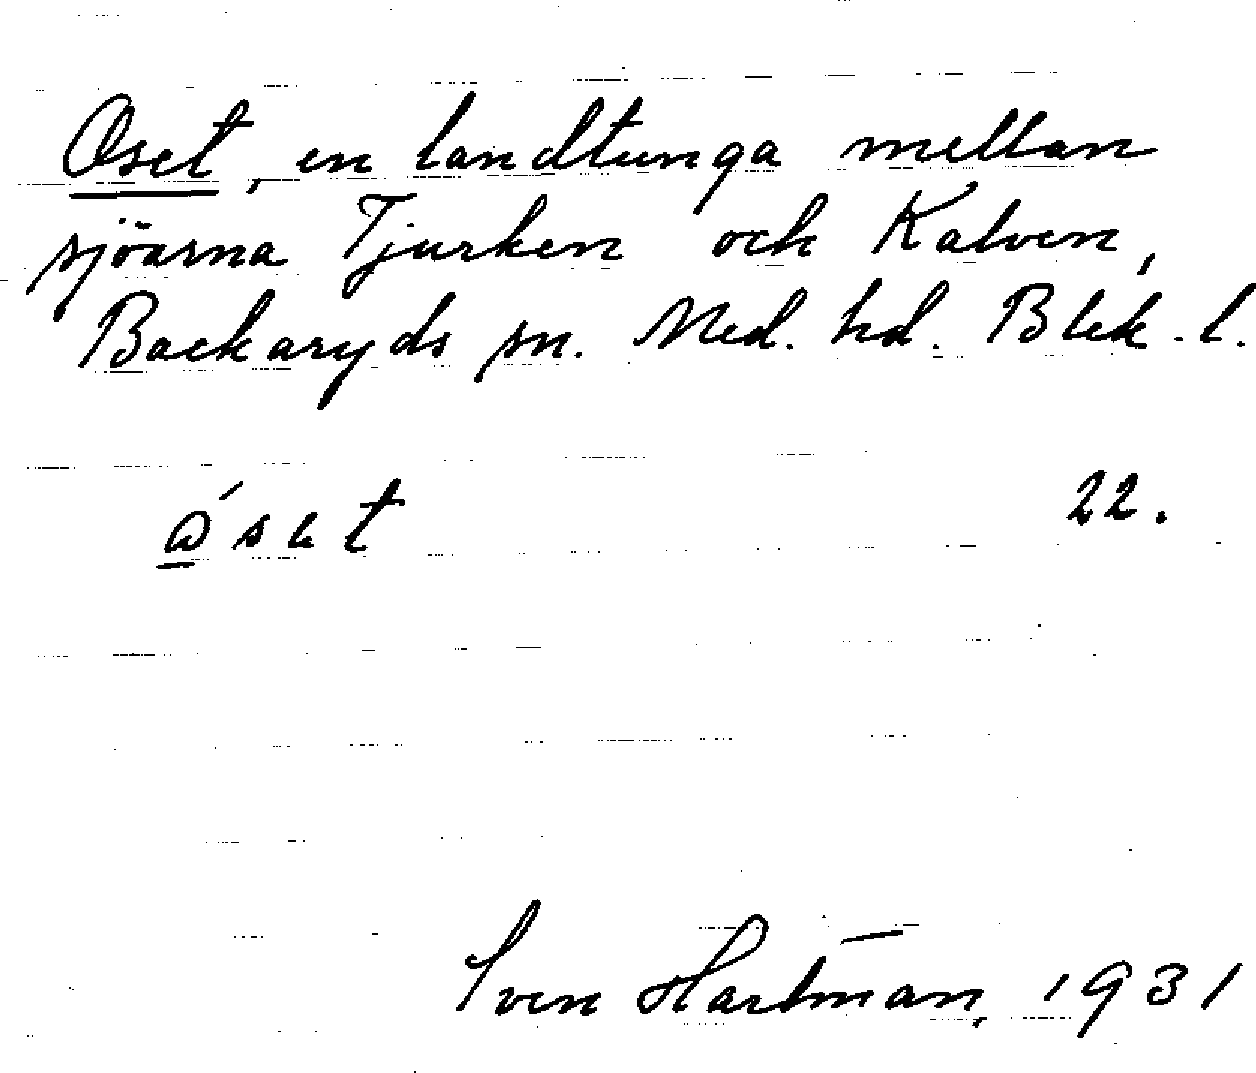 Oset, en landtunga mellan
sjöarna Tjurken och Kalven,
Backaryds sn. Med. hd. Blek. l.
22.
Sven Hartman, 1931